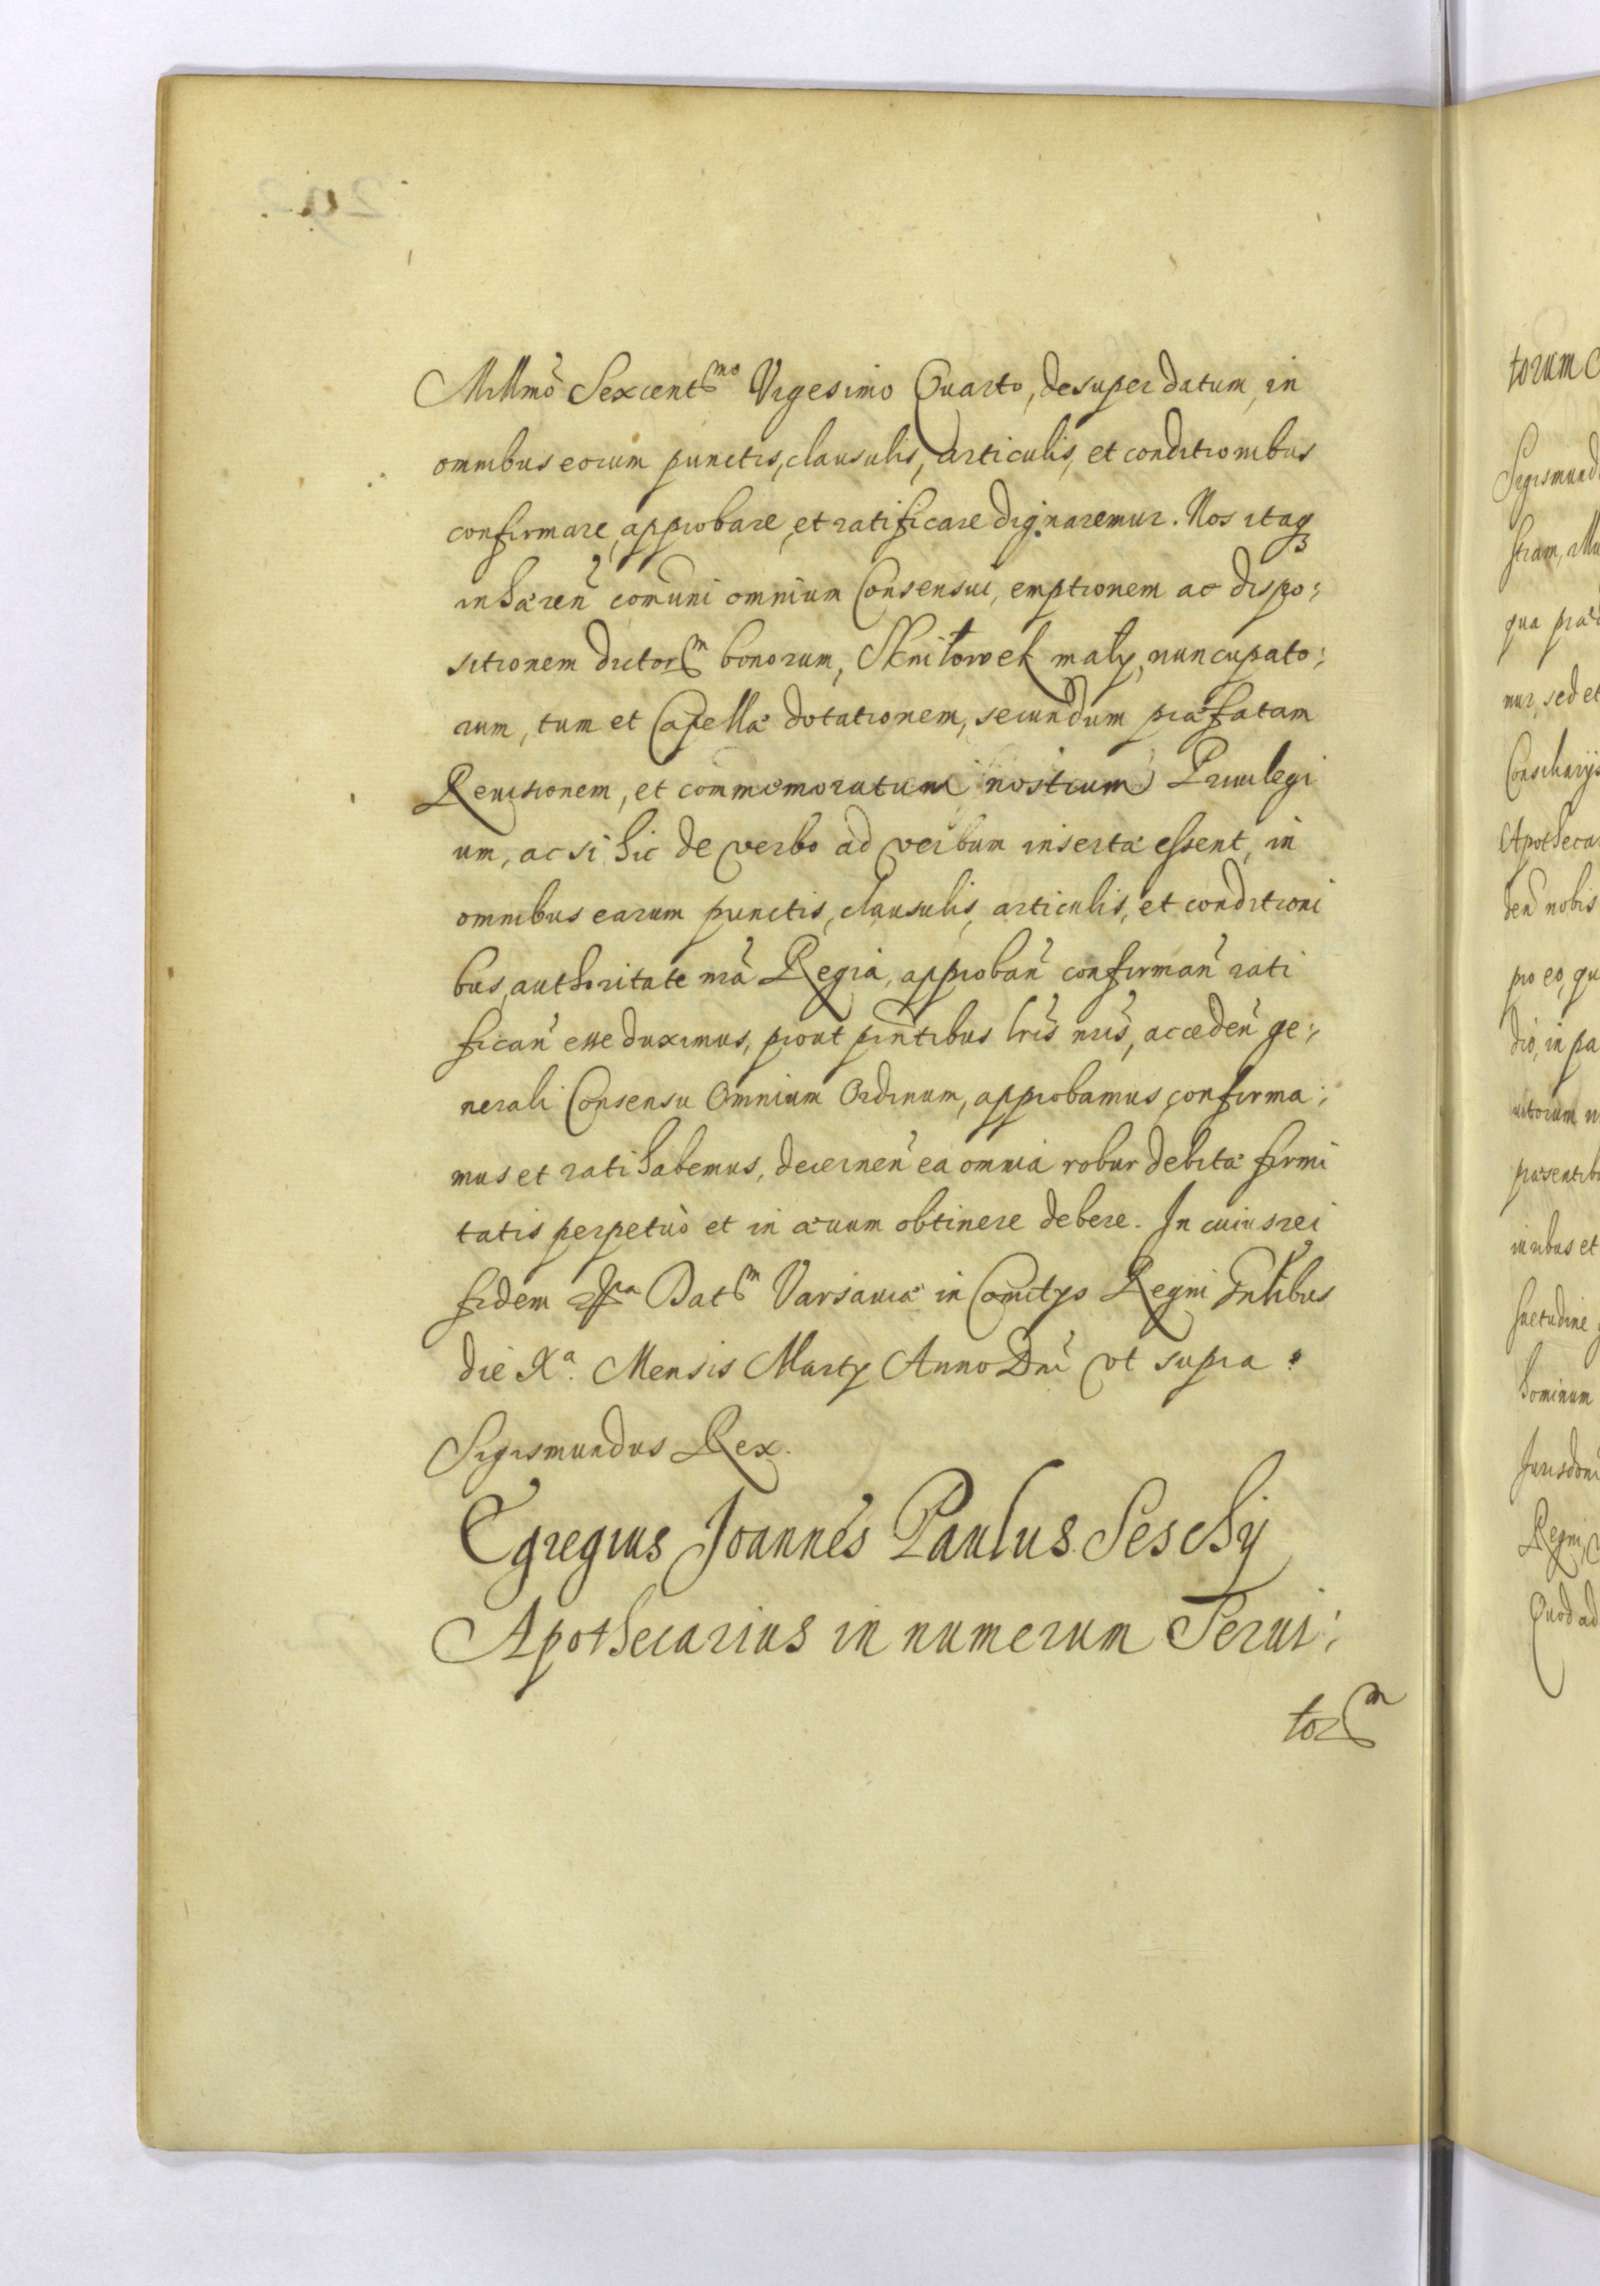 Millmo Sexcentmo Vigesimo Quarto, desuper datum, in
omnibus eorum punctis, clausulis, articulis, et conditionibus
confirmare, approbare, et ratificare dignaremur. Nos itaqꝫ
inhæren̄ comuni omnium Consensui, emptionem ac dispo:
sitionem dictorm bonorum, Skniłowek mały, nuncupato:
rum, tum et Capellæ dotationem, secundum præfatam
Reuisionem, et commemoratum nostrum Priuilegi
um, ac si hic de verbo ad verbum inserta essent, in
omnibus earum punctis, clausulis, articulis, et conditioni
bus, authoritate nrā Regia, approban̄ confirman̄ rati
fican̄ esse duximus, prout pñtibus lris nris, acceden̄ ge:
nerali Consensu Omnium Ordinum, approbamus, confirma:
mus et ratihabemus, decernen̄ ea omnia robur debitæ firmi
tatis perpetuò et in æuum obtinere debere. In cuius rei
fidem Datm Varsauiæ in Comitys Regni Gnlibus
die Xa. Mensis Marty Anno Dni vt supra.
Sigismundus Rex.
Egregius Joannes Paulus Seschy
Apothecarius in numerum Serui:
torm
torum
Sigismund
stram,
qua
nur, sed et
Consiliarijs
Apotheca
den̄ nobis
pro eo, qu
dio, in pa
præsentib
inibus et
suetudine
hominum
Jurisdoni
Regni,
Quod ad